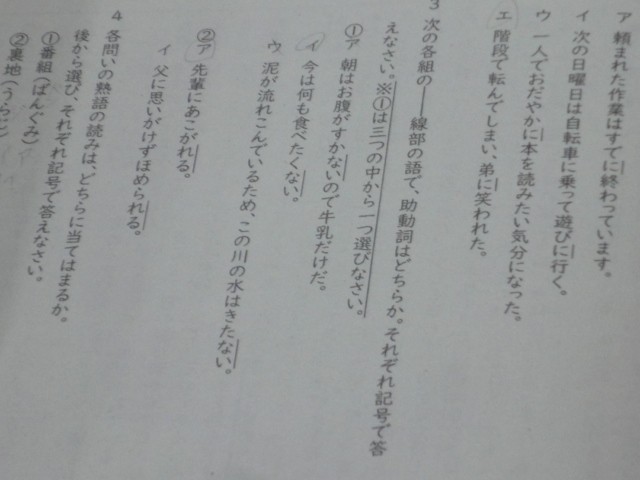 ア 頼まれた作業はすでに終わっています。
イ 次の日曜日は自転車に乗って遊びに行く。
ウ 一人でおだやかに本を読みたい気分になった。
エ 階段で転んでしまい、弟に笑われた。
3 次の各組の――線部の語で、助動詞はどちらか。それぞれ記号で答
えなさい。※①は三つの中から一つ選びなさい。
①ア 朝はお腹がすかないので牛乳だけだ。
イ 今は何も食べたくない。
ウ 泥が流れこんでいるため、この川の水はきたない。
②ア 先輩にあこがれる。
イ 父に思いがけずほめられる。
4 各問いの熟語の読みは、どちらに当てはまるか。
後から選び、それぞれ記号で答えなさい。
①番組(ばんぐみ)
②裏地(うらじ)